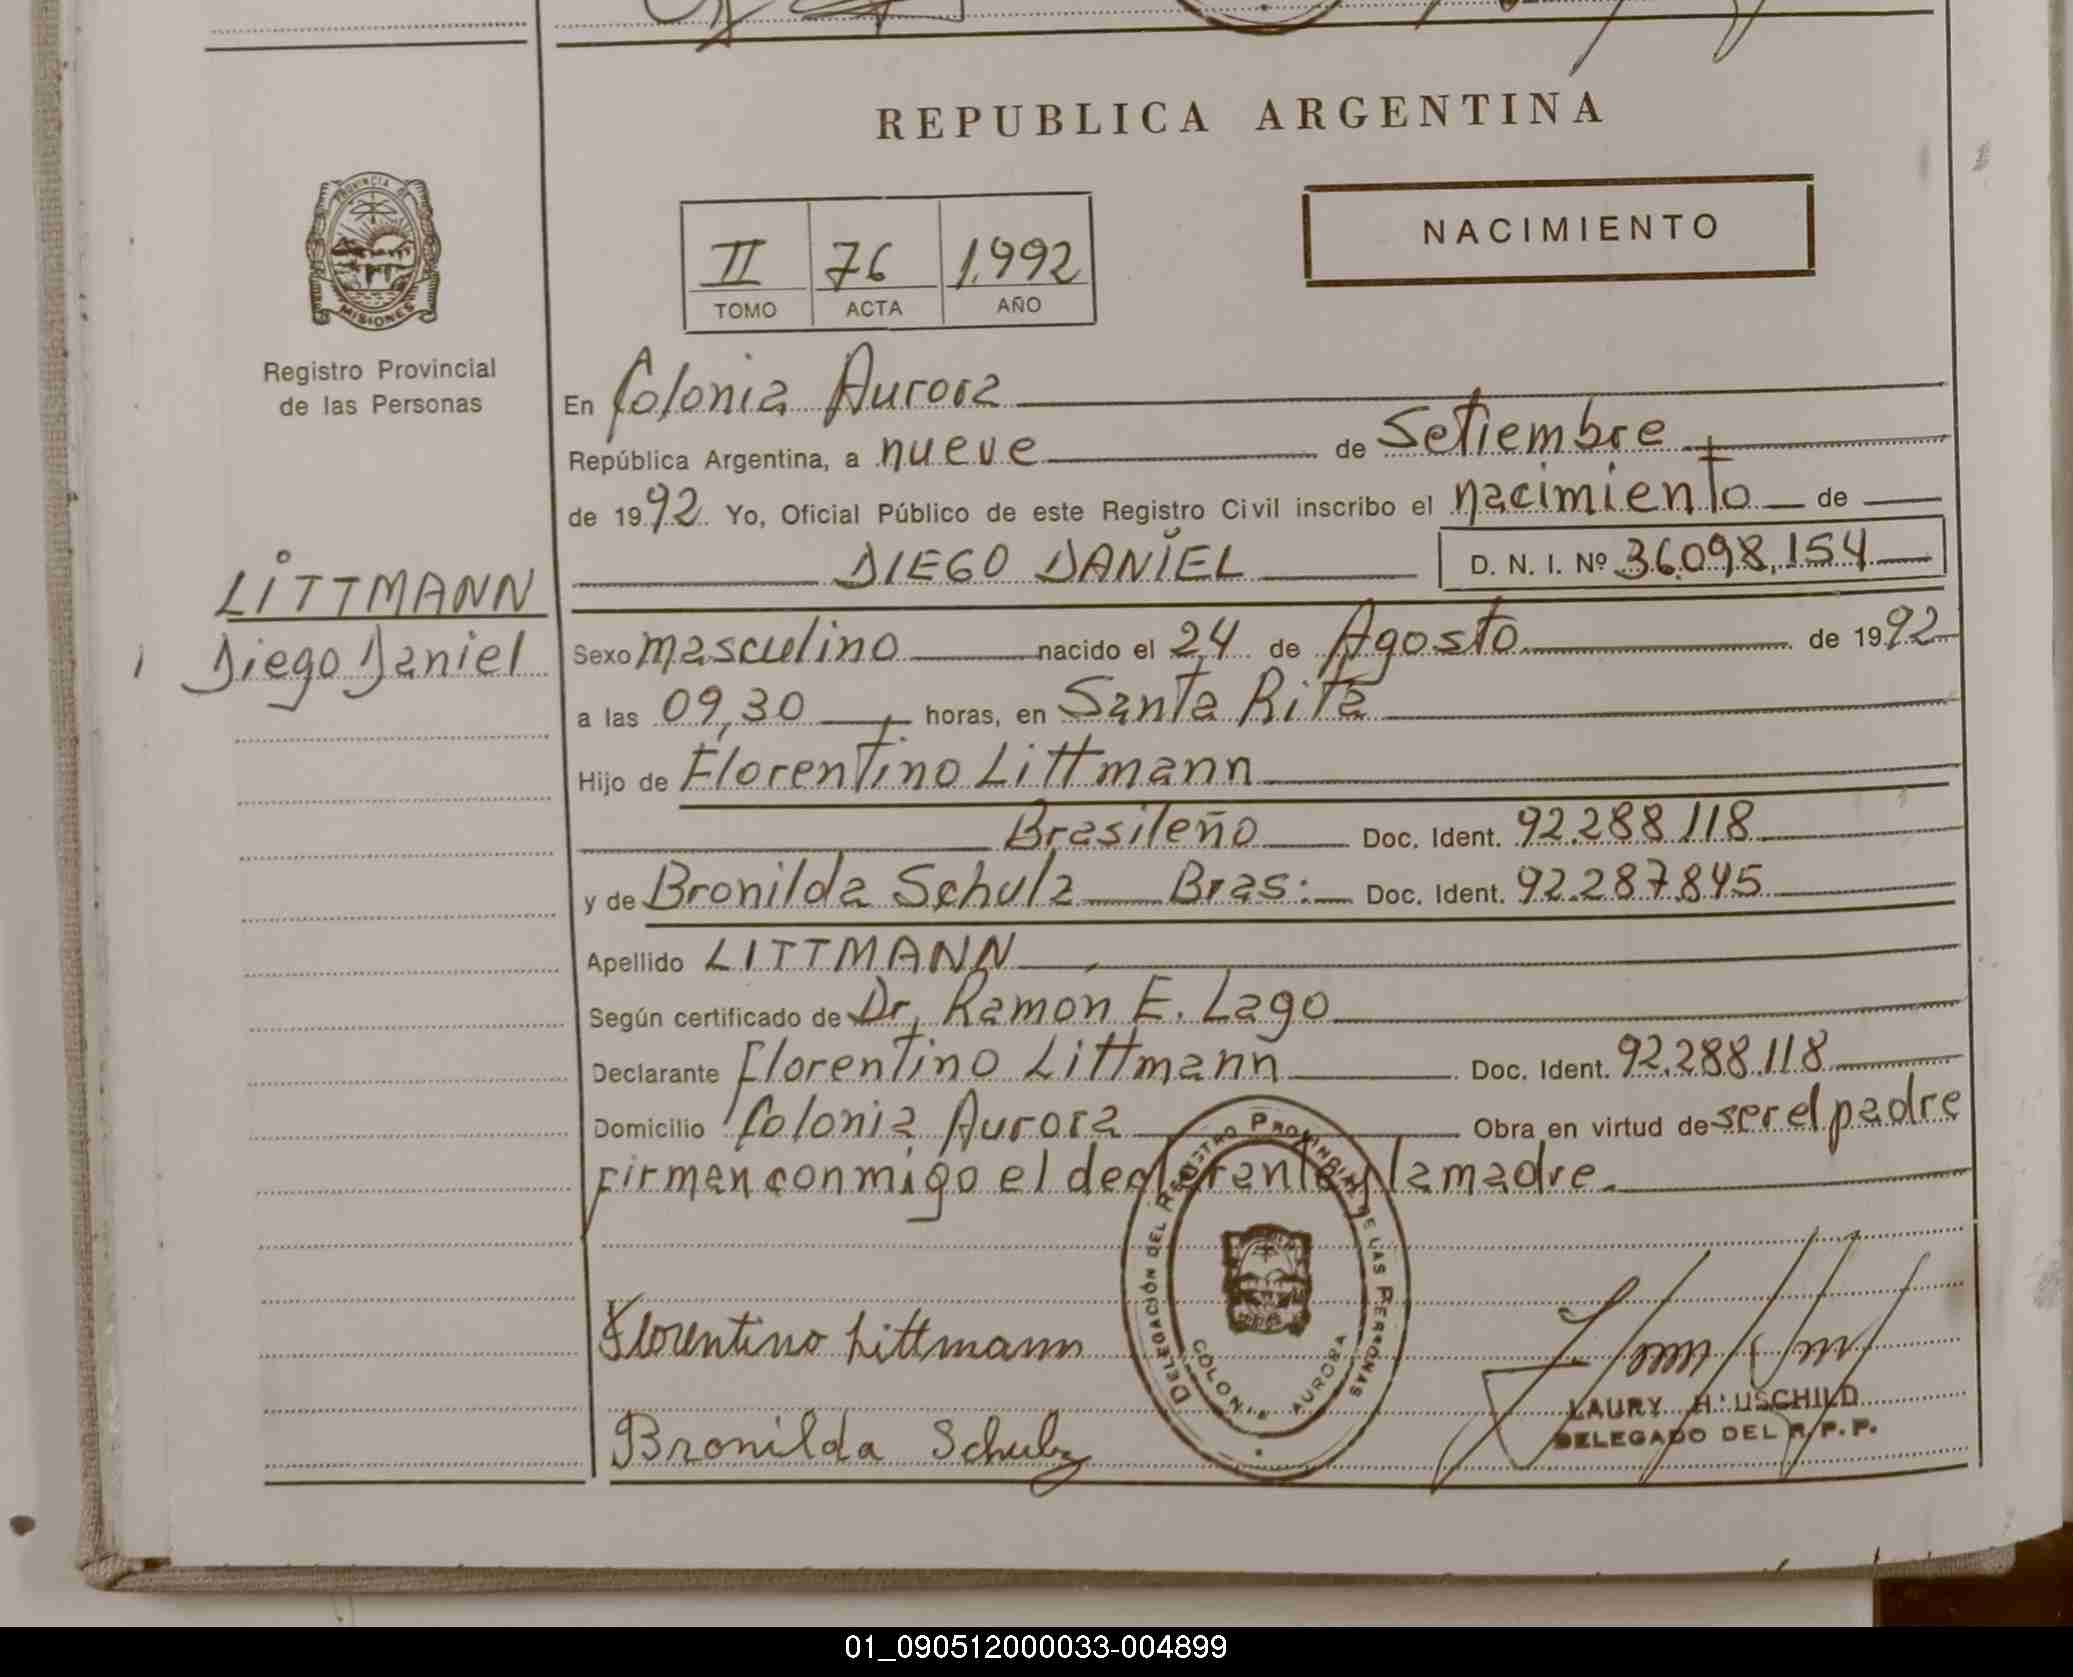 REPUBLICA ARGENTINA
NACIMIENTO
II 76 1.992
TOMO ACTA AÑO
PROVINCIA DE
MISIONES
Registro Provincial
de las Personas
LITTMANN
Diego Daniel
En Colonia Aurora
República Argentina, a nueve de Setiembre
de 1992 Yo, Oficial Público de este Registro Civil inscribo el nacimiento de
DIEGO DANIEL D. N. I. Nº 36.098.154
Sexo masculino nacido el 24 de Agosto de 1992
a las 09,30 horas, en Santa Rita
Hijo de Florentino Littmann
Brasileño Doc. Ident. 92.288.118
y de Bronilda Schulz Bras: Doc. Ident. 92.287.845
Apellido LITTMANN
Según certificado de Dr. Ramon E. Lago
Declarante Florentino Littmann Doc. Ident. 92.288.118
Domicilio Colonia Aurora Obra en virtud de ser el padre
Firman conmigo el declarante y la madre.
DELEGACIÓN DEL REGISTRO PROVINCIAL DE LAS PERSONAS
COLONIA AURORA
Florentino Littmann
Bronilda Schulz
LAURY H USCHILD
DELEGADO DEL R.P.P.
01_090512000033-004899